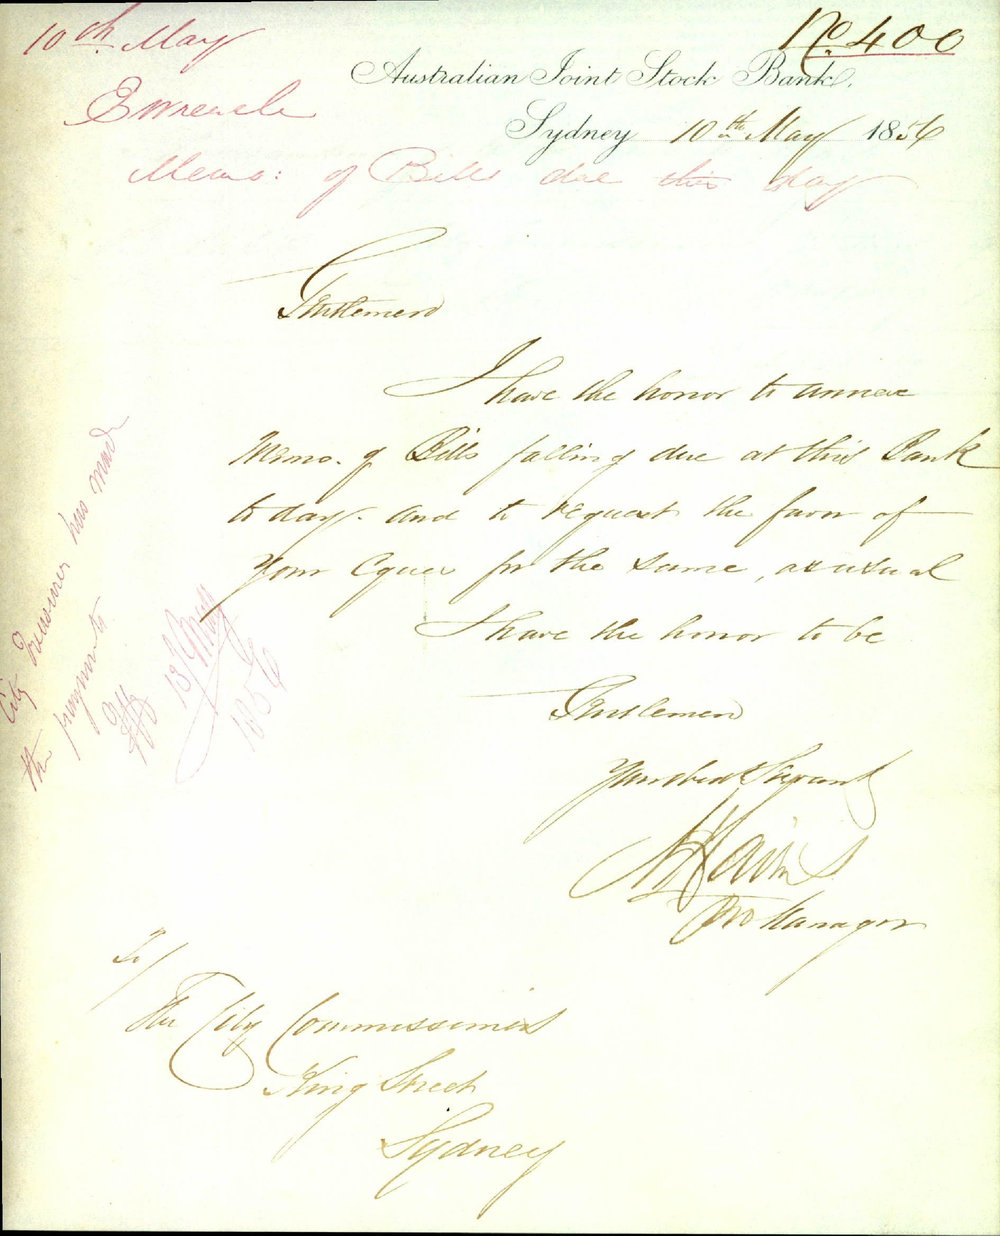 10th May
No. 400
Australian Joint Stock Bank,
Sydney 10th May 1856
Memo: of Bills due this day
Gentlemen
I have the honor to annex
Memo. of Bills falling due at this Bank
to day. and to request the favor of
Your Cque for the same, as usual
I have the honor to be
Gentlemen
Your obedt Servant
Pro Manager
City Treasurer has made
the payments
13/May
1856
To/
The City Commissioners
King Street
Sydney